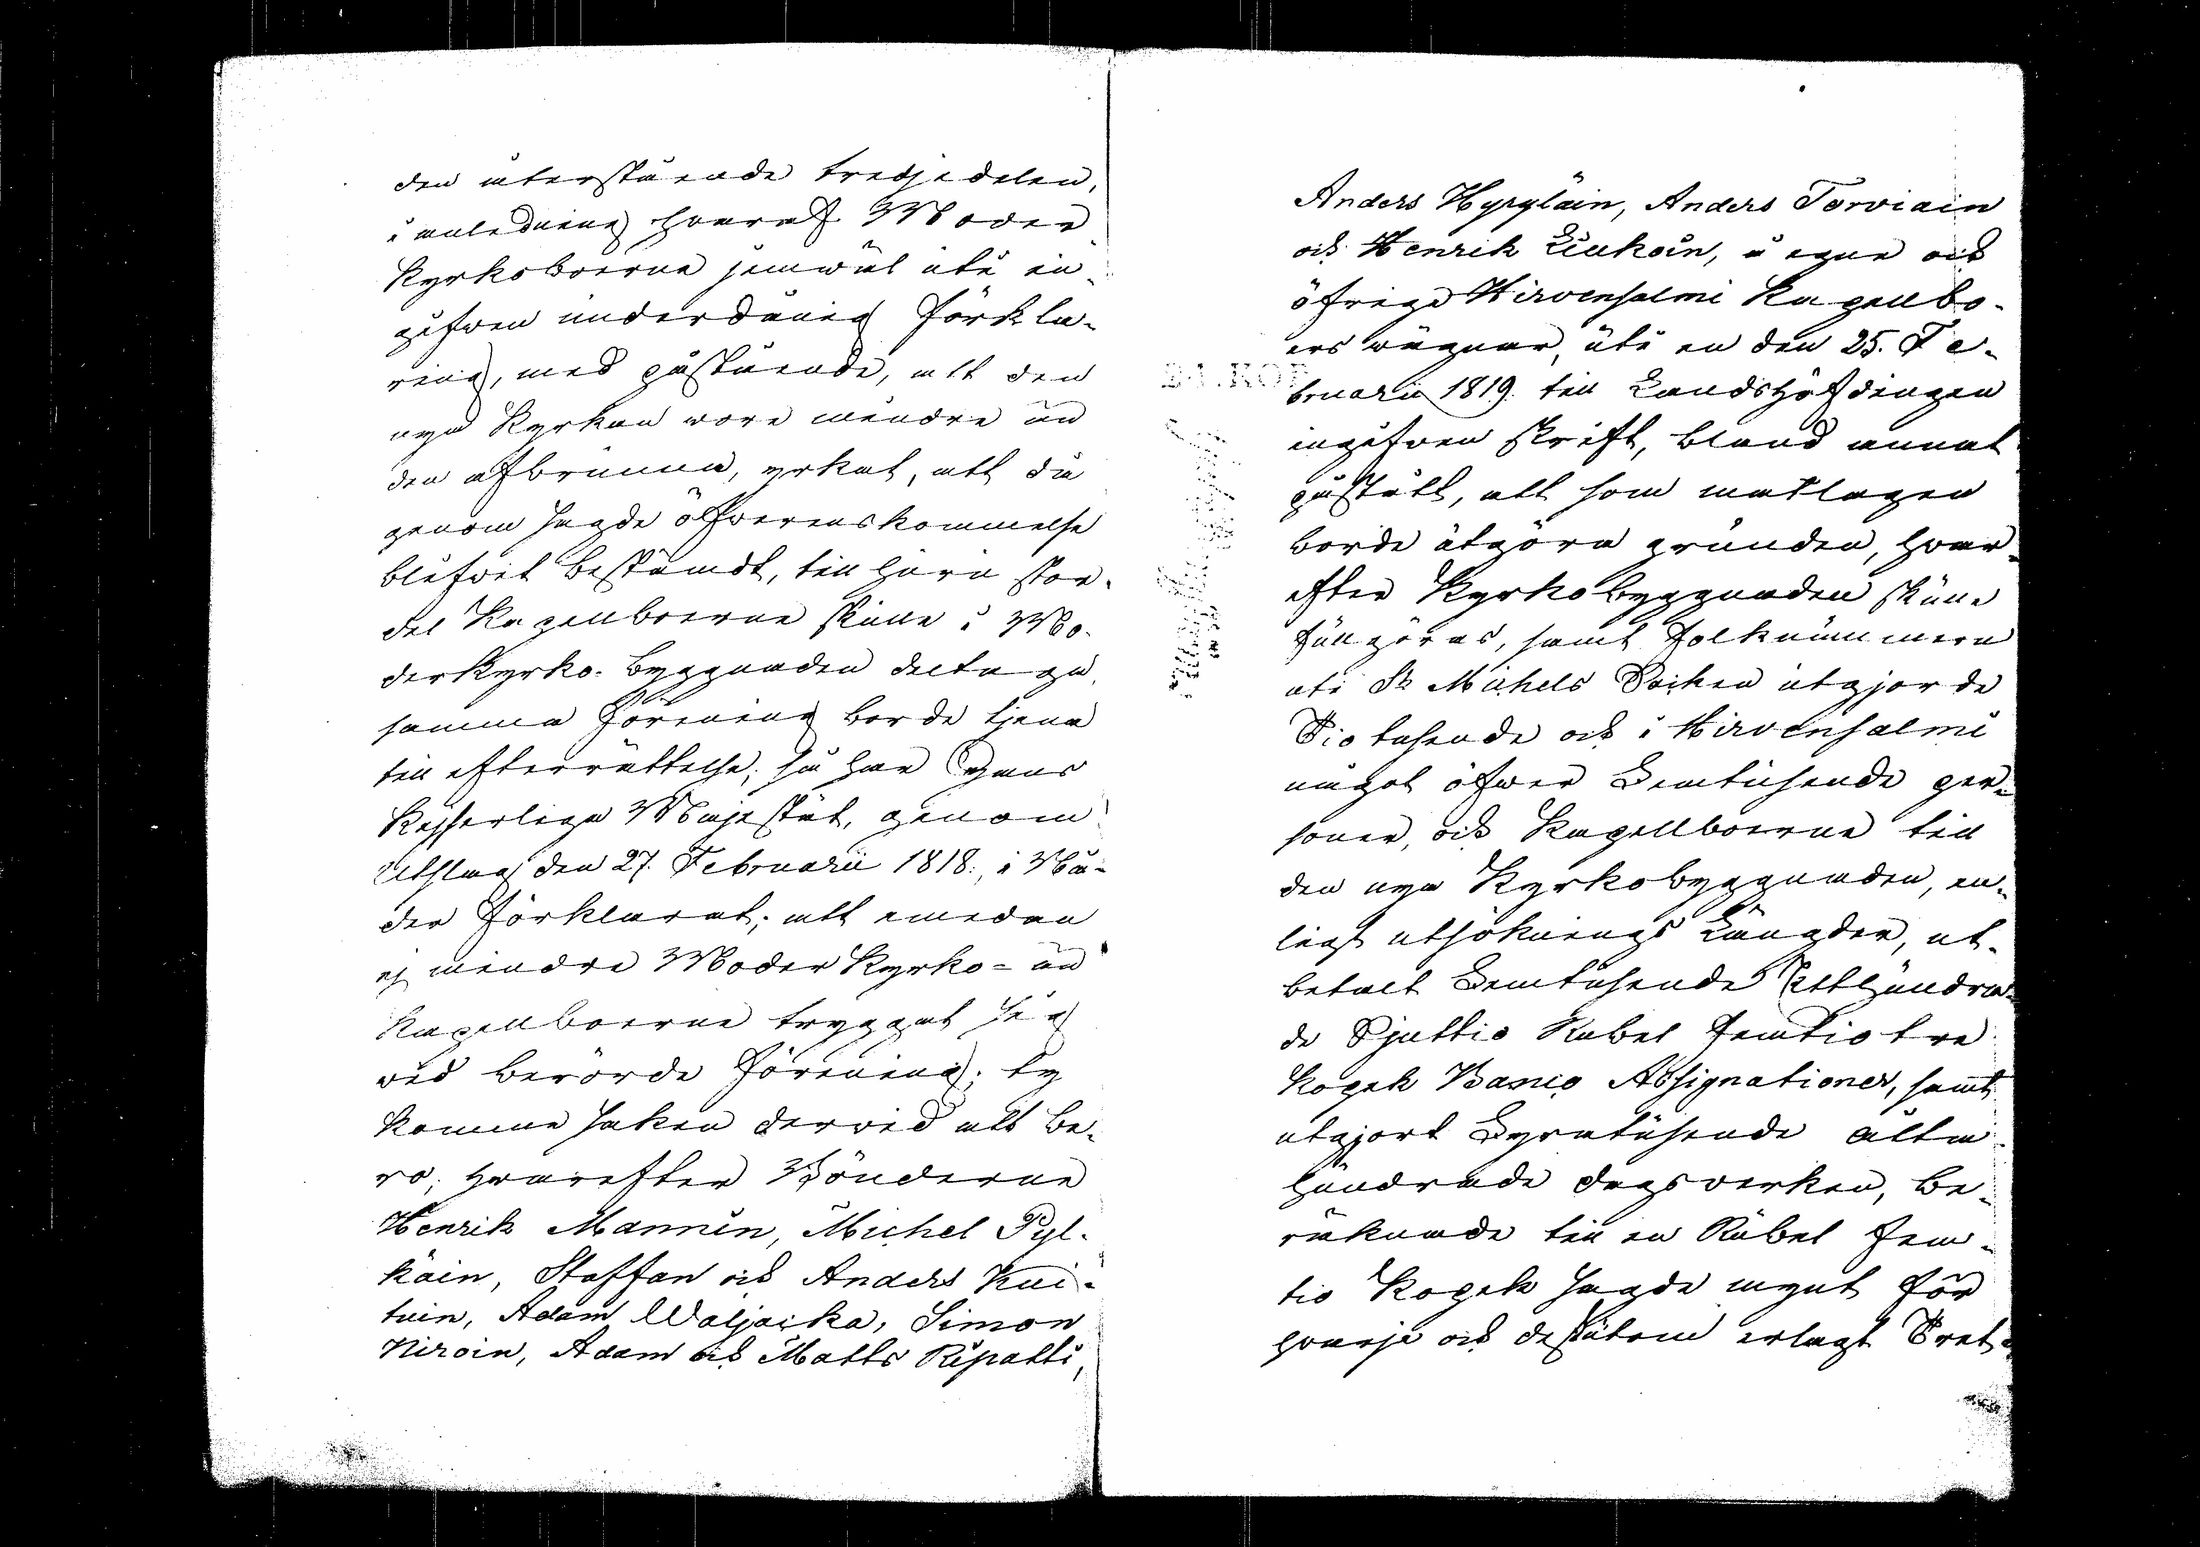 den återstående tredjedelen,
i anledning hvaraf Moder
Kyrkoboerne jemwäl uti in-
gifwen underdånig förkla-
ring, med påstående, att den
nya Kyrkan wore mindre än
den afbrunna, yrkat, att då
genom sagde öfwerenskommelse
blifwit bestämdt, till huru stor
del Kapellboerne skulle i Mo-
derkyrko-byggnaden deltaga,
samma förening borde tjena
till efterrättelse; så har Hans
Kejserliga Majestät, genom
Utslag den 27. Februarii 1818., i Nå-
der förklarat; att emedan
ej mindre Moder Kyrko- än
Kapellboerne tryggat sig
wid berörde förening; ty
komme saken derwid att be-
ro; hwarefter Bönderne
Henrik Mannin, Michel Pyl-
käin, Staffan och Anders Kui-
tuin, Adam Waljacka, Simon
Niroin, Adam och Matts Ripatti,
Anders Hyryläin, Anders Torviain
och Henrik Liukoin, å egne och
öfrige Hirvensalmi Kapellbo-
ers wägnar, uti en den 25. Fe-
bruarii 1819. till Landshöfdingen
ingifwen skrift, bland annat
påstått, att som matlagen
borde utgöra grunden, hwar-
efter Kyrkobyggnaden skulle
fullgöras, samt folknummern
uti St Michels Socken utgjorde
Tiotusende och i Hirvensalmi
något öfwer Femtusende per-
soner, och Kapellboerne till
den nya Kyrkobyggnaden, en-
ligt utsöknings Längder, ut-
betalt Femtusende Etthundra-
de Sjuttio Rubel femtiotre
Kopek Banco Assignationer, samt
utgjort Fyratusende åtta-
hundrade dagsverken, be-
räknade till en Rubel fem-
tio Kopek sagde mynt för
hvarje och dessutom erlagt Tret-